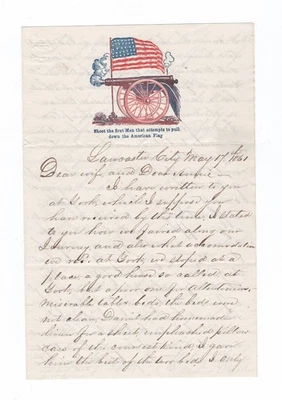 Shoot the first Man that attempts to pull
down the American Flag
Lancaster City May 17th 1861
Dear wife and Dear
I have written to you
at York, which I suppose you
have received by this time, I stated
to you how we faired along our
Journey and also what accommodation
we at York, we stoped at a
place a good house so called at
York, but a poor one for attention,
miserable table, beds, the bed were
not clean, Daniel had homemade
linen for a sheet, unbleached pillow
case of the coarsest kind, I gave
him the best of the two beds I only